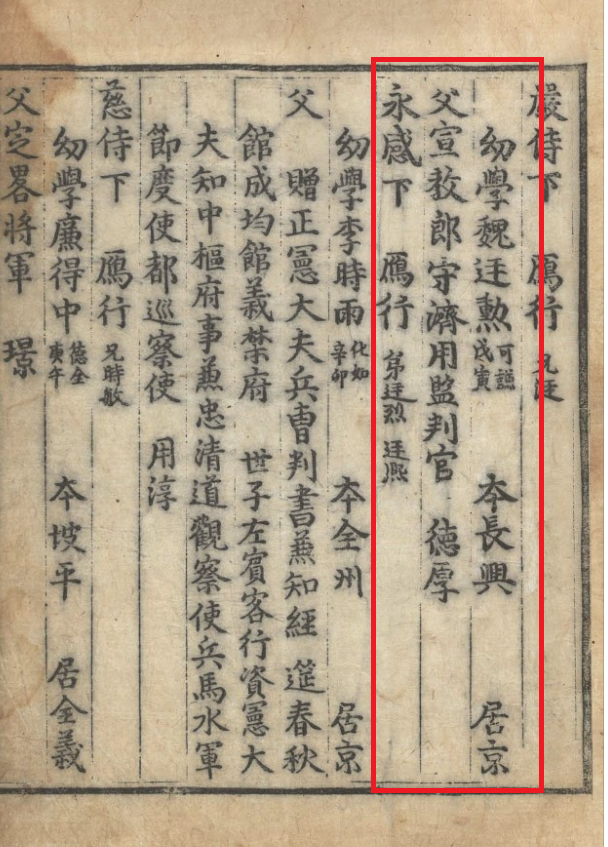 嚴侍下 鴈行 兄廷
幼學魏廷勳 可謙 戊寅 本長興 居京
父宣敎郎守濟用監判官 德厚
永感下 鴈行 弟廷烈 廷熙
幼學李時雨 化如 辛卯 本全州 居京
父 贈正憲大夫兵曹判書兼知經 筵春秋
館成均館義禁府 世子左賓客行資憲大
夫知中樞府事兼忠清道觀察使兵馬水軍
節度使都巡察使 用淳
慈侍下 鴈行 兄時敏
幼學廉得中 德全 庚午 本坡平 居全義
父定畧將軍 璟